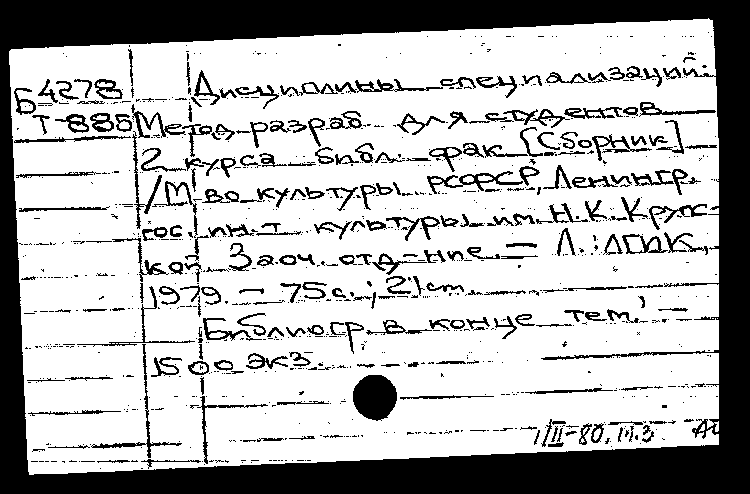 Б 4278 Дисциплины специализаций:
Т-885 Метод. разраб. для студентов
2 курса библ. фак [Сборник]
/М во культуры РСФСР, Ленингр.
гос. ин-т культуры им. Н.К. Крупс-
кой Заоч. отд-ние. — Л.: ЛГИК,
1979. — 75 с.; 21 ст.
Библиогр. в конце тем. —
1500 экз.
1/II-80.